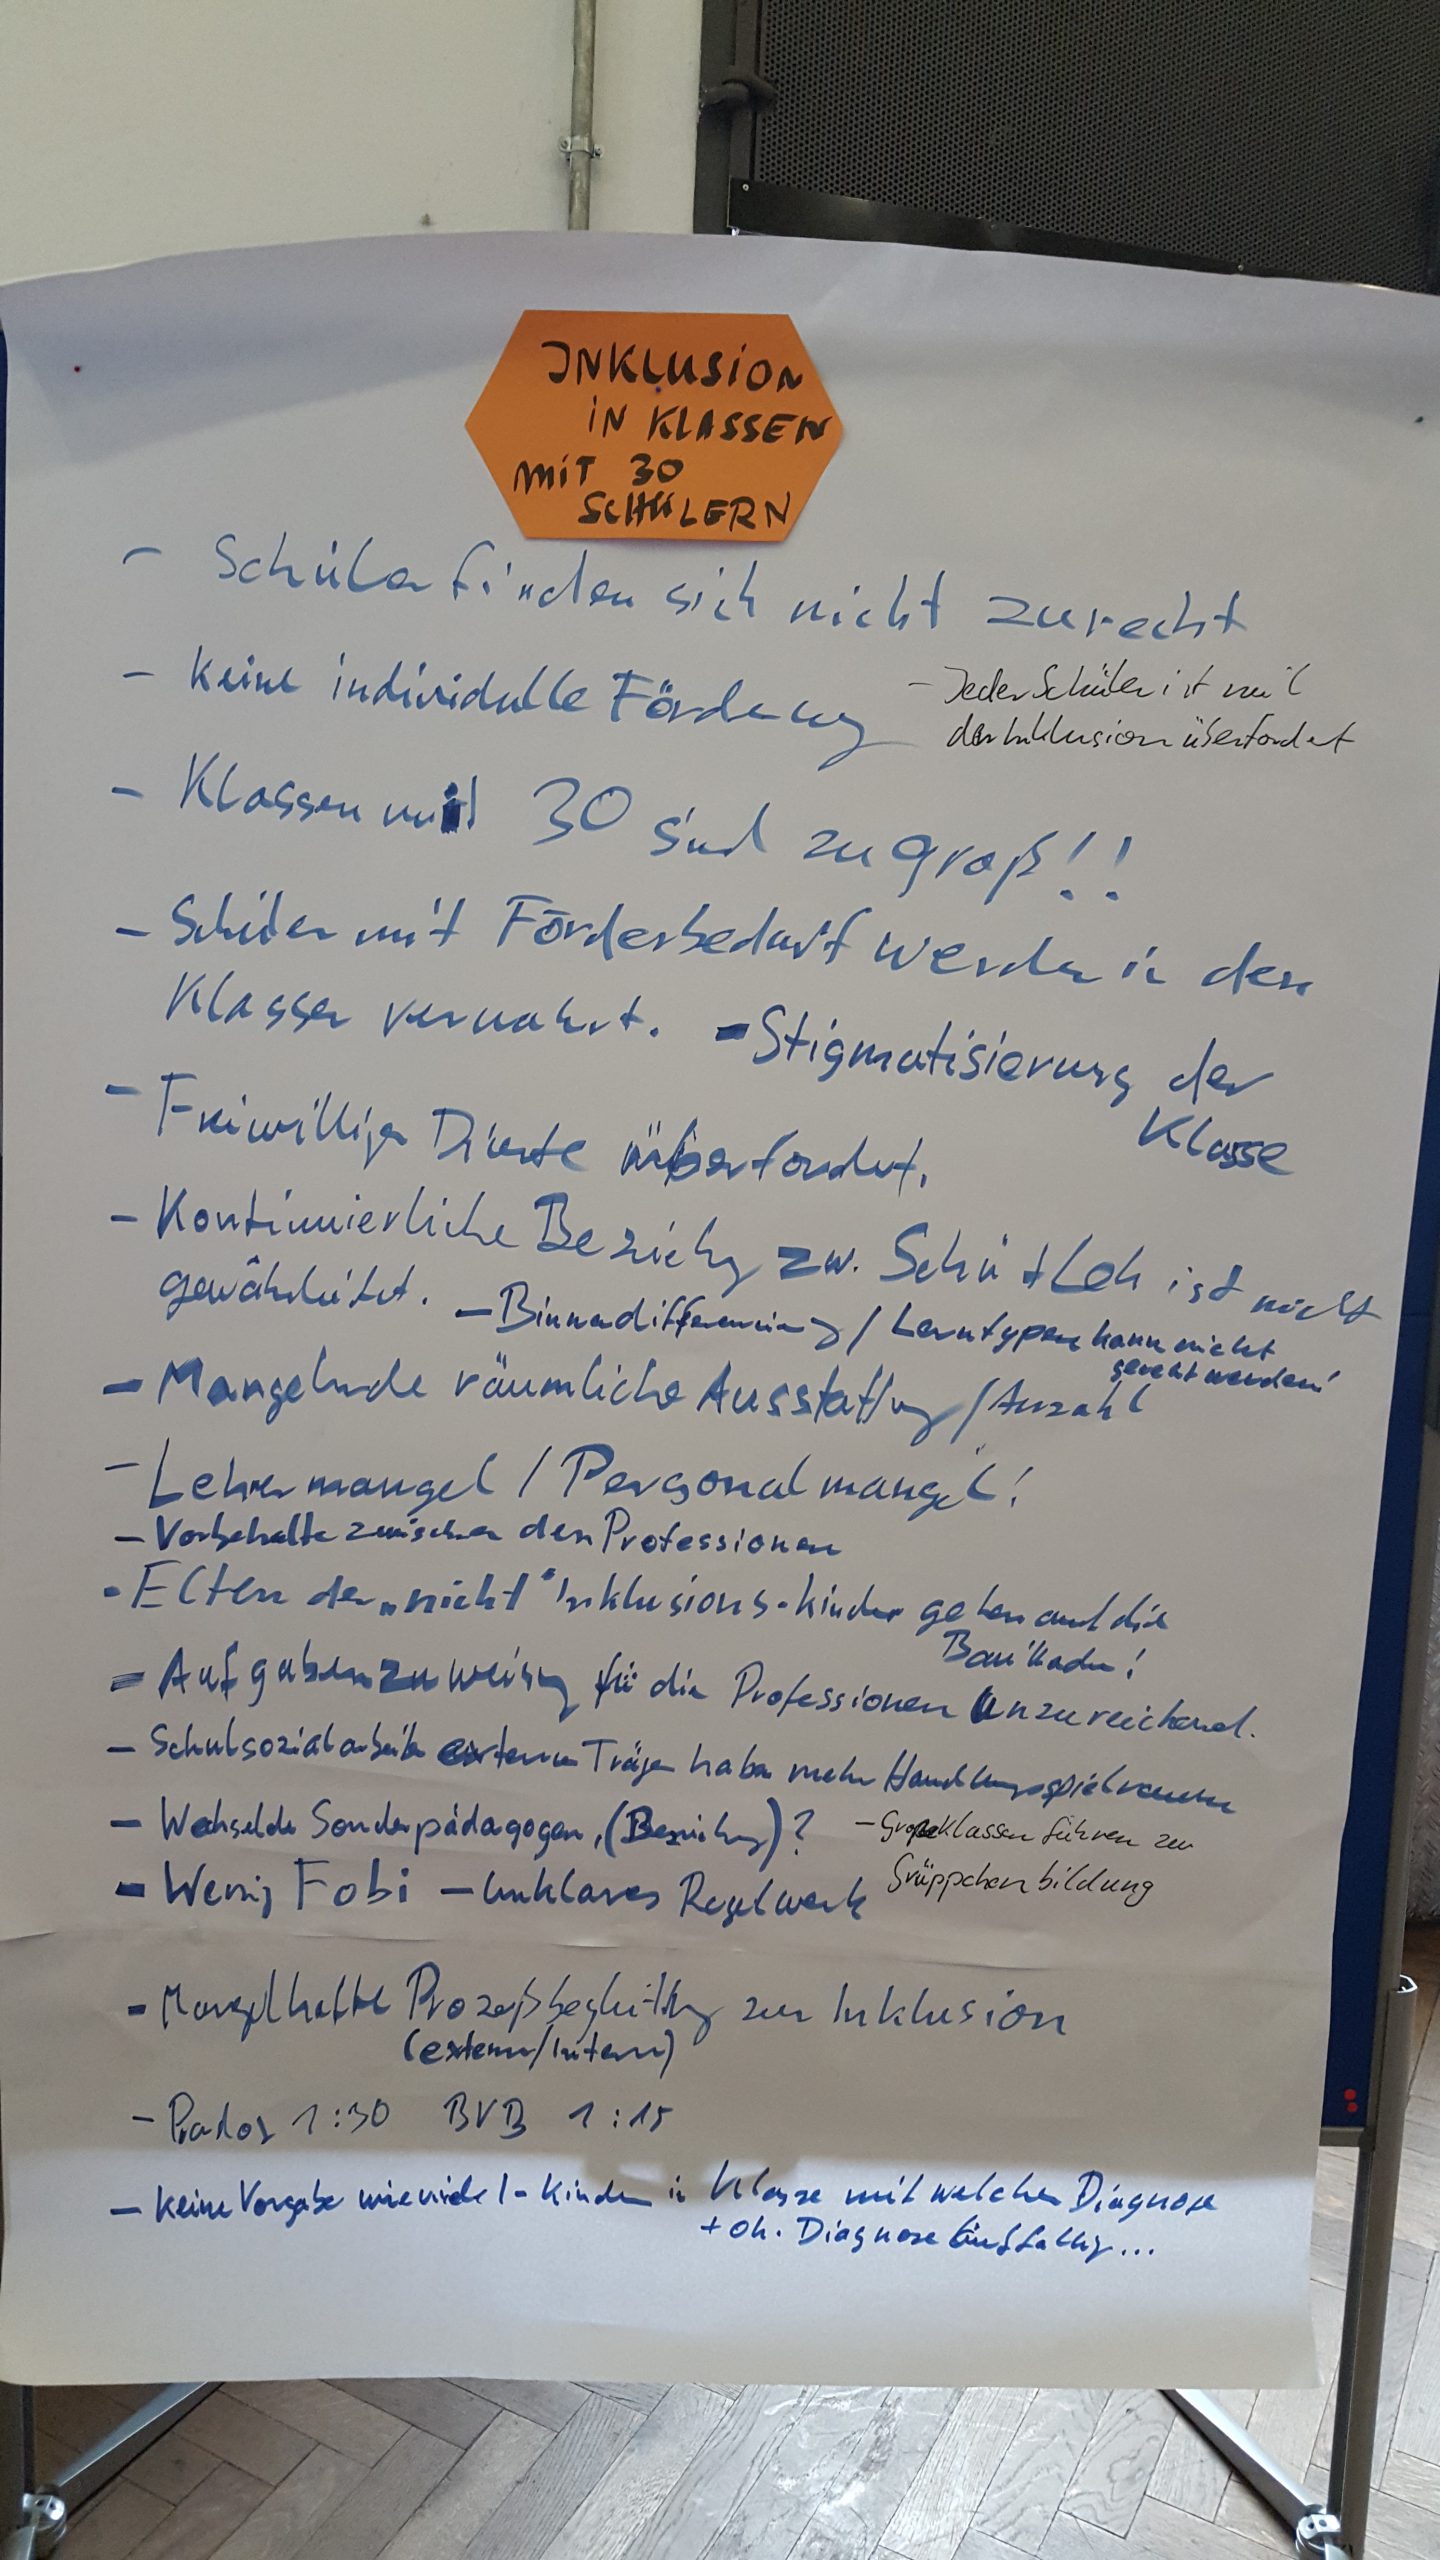 INKLUSION
IN KLASSEN
MIT 30
SCHÜLERN
- Schüler finden sich nicht zurecht
- Keine individuelle Förderung
- Jeder Schüler ist mit
der Inklusion überfordert
- Klassen mit 30 sind zu groß!!
- Schüler mit Förderbedarf werden in den
Klassen verwahrt. - Stigmatisierung der
Klasse
- Freiwillige Dienste überfordert.
- Kontinuierliche Beziehung zw. Schü + Leh ist nicht
gewährleistet. - Binnendifferenzierung / Lerntypen kann nicht
gerecht werden!
- Mangelnde räumliche Ausstattung / Anzahl
- Lehrermangel / Personalmangel!
- Vorbehalte zwischen den Professionen
- Eltern der "nicht" Inklusions-kinder gehen auf die
Barrikaden!
- Aufgabenzuweisung für die Professionen unzureichend.
- Schulsozialarbeit externe Träger haben mehr Handlungsspielraum
- Wechselde Sonderpädagogen, (Beziehung)?
- Große Klassen führen zu
Grüppchenbildung
- Wenig Fobi - Unklares Regelwerk
- Mangelhafte Prozeßbegleitung zur Inklusion
(extern/intern)
- 1:30 BVB 1:15
- Keine Vorgabe wieviele I-Kinder in Klasse mit welcher Diagnose
+ oh. Diagnose